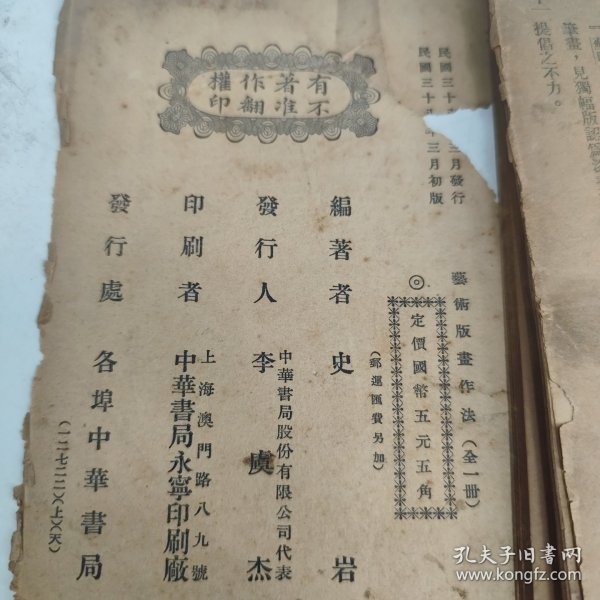 筆畫，見獨幅版
提倡之不力。
民國三十 三月發行
民國三十 年三月初版
藝術版畫作法（全一冊）
◎定價國幣五元五角
（郵運匯費另加）
有著作權
不准翻印
編著者 史岩
發行人 中華書局股份有限公司代表
李虞杰
印刷者 上海澳門路八九號
中華書局永寧印刷廠
發行處 各埠中華書局
（一二七二二）（上）（天）
孔夫子旧书网
www.kongfz.com